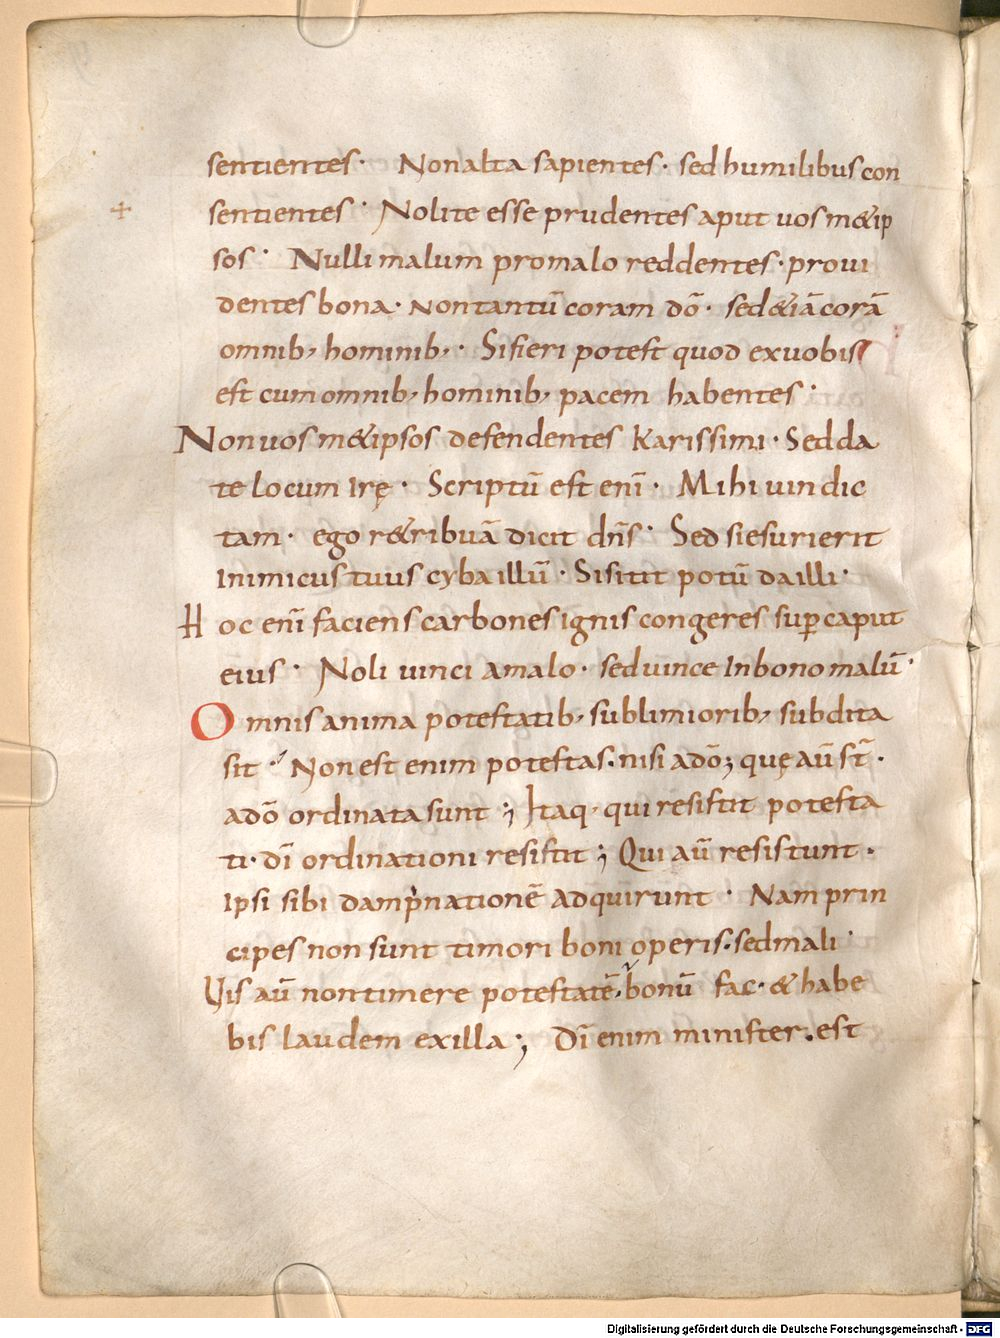 sentientes · Non alta sapientes · sed humilibus con
sentientes · Nolite esse prudentes aput uos m&ip
sos · Nulli malum pro malo reddentes · proui
dentes bona · Non tantū coram dō · sed &iā corā
omnib; hominib; · Si fieri potest quod ex uobis
est cum omnib; hominib; pacem habentes ·
Non uos m&ipsos defendentes Karissimi · Sed da
te locum irę · Scriptū est enī · Mihi uindic
tam · ego r&ribuā dicit dn̄s · Sed si esurierit
Inimicus tuus cyba illū · Si sitit potū da illi ·
Hoc enī faciens carbones ignis congeres sup̱ caput
eius · Noli uinci a malo · sed uince In bono malū ·
Omnis anima potestatib; sublimiorib; subdita
sit · Non est enim potestas · nisi a dō; quę aū st̄ ·
a dō ordinata sunt ; Itaq· qui resistit potesta
ti · dī ordinationi resistit ; Qui aū resistunt ·
Ipsi sibi dampnationē adquirunt · Nam prin
cipes non sunt timori boni operis · sed mali ·
Uis aū non timere potestatē · bonū fac · & habe
bis laudem ex illa ; Dī enim minister · est
Digitalisierung gefördert durch die Deutsche Forschungsgemeinschaft - DFG